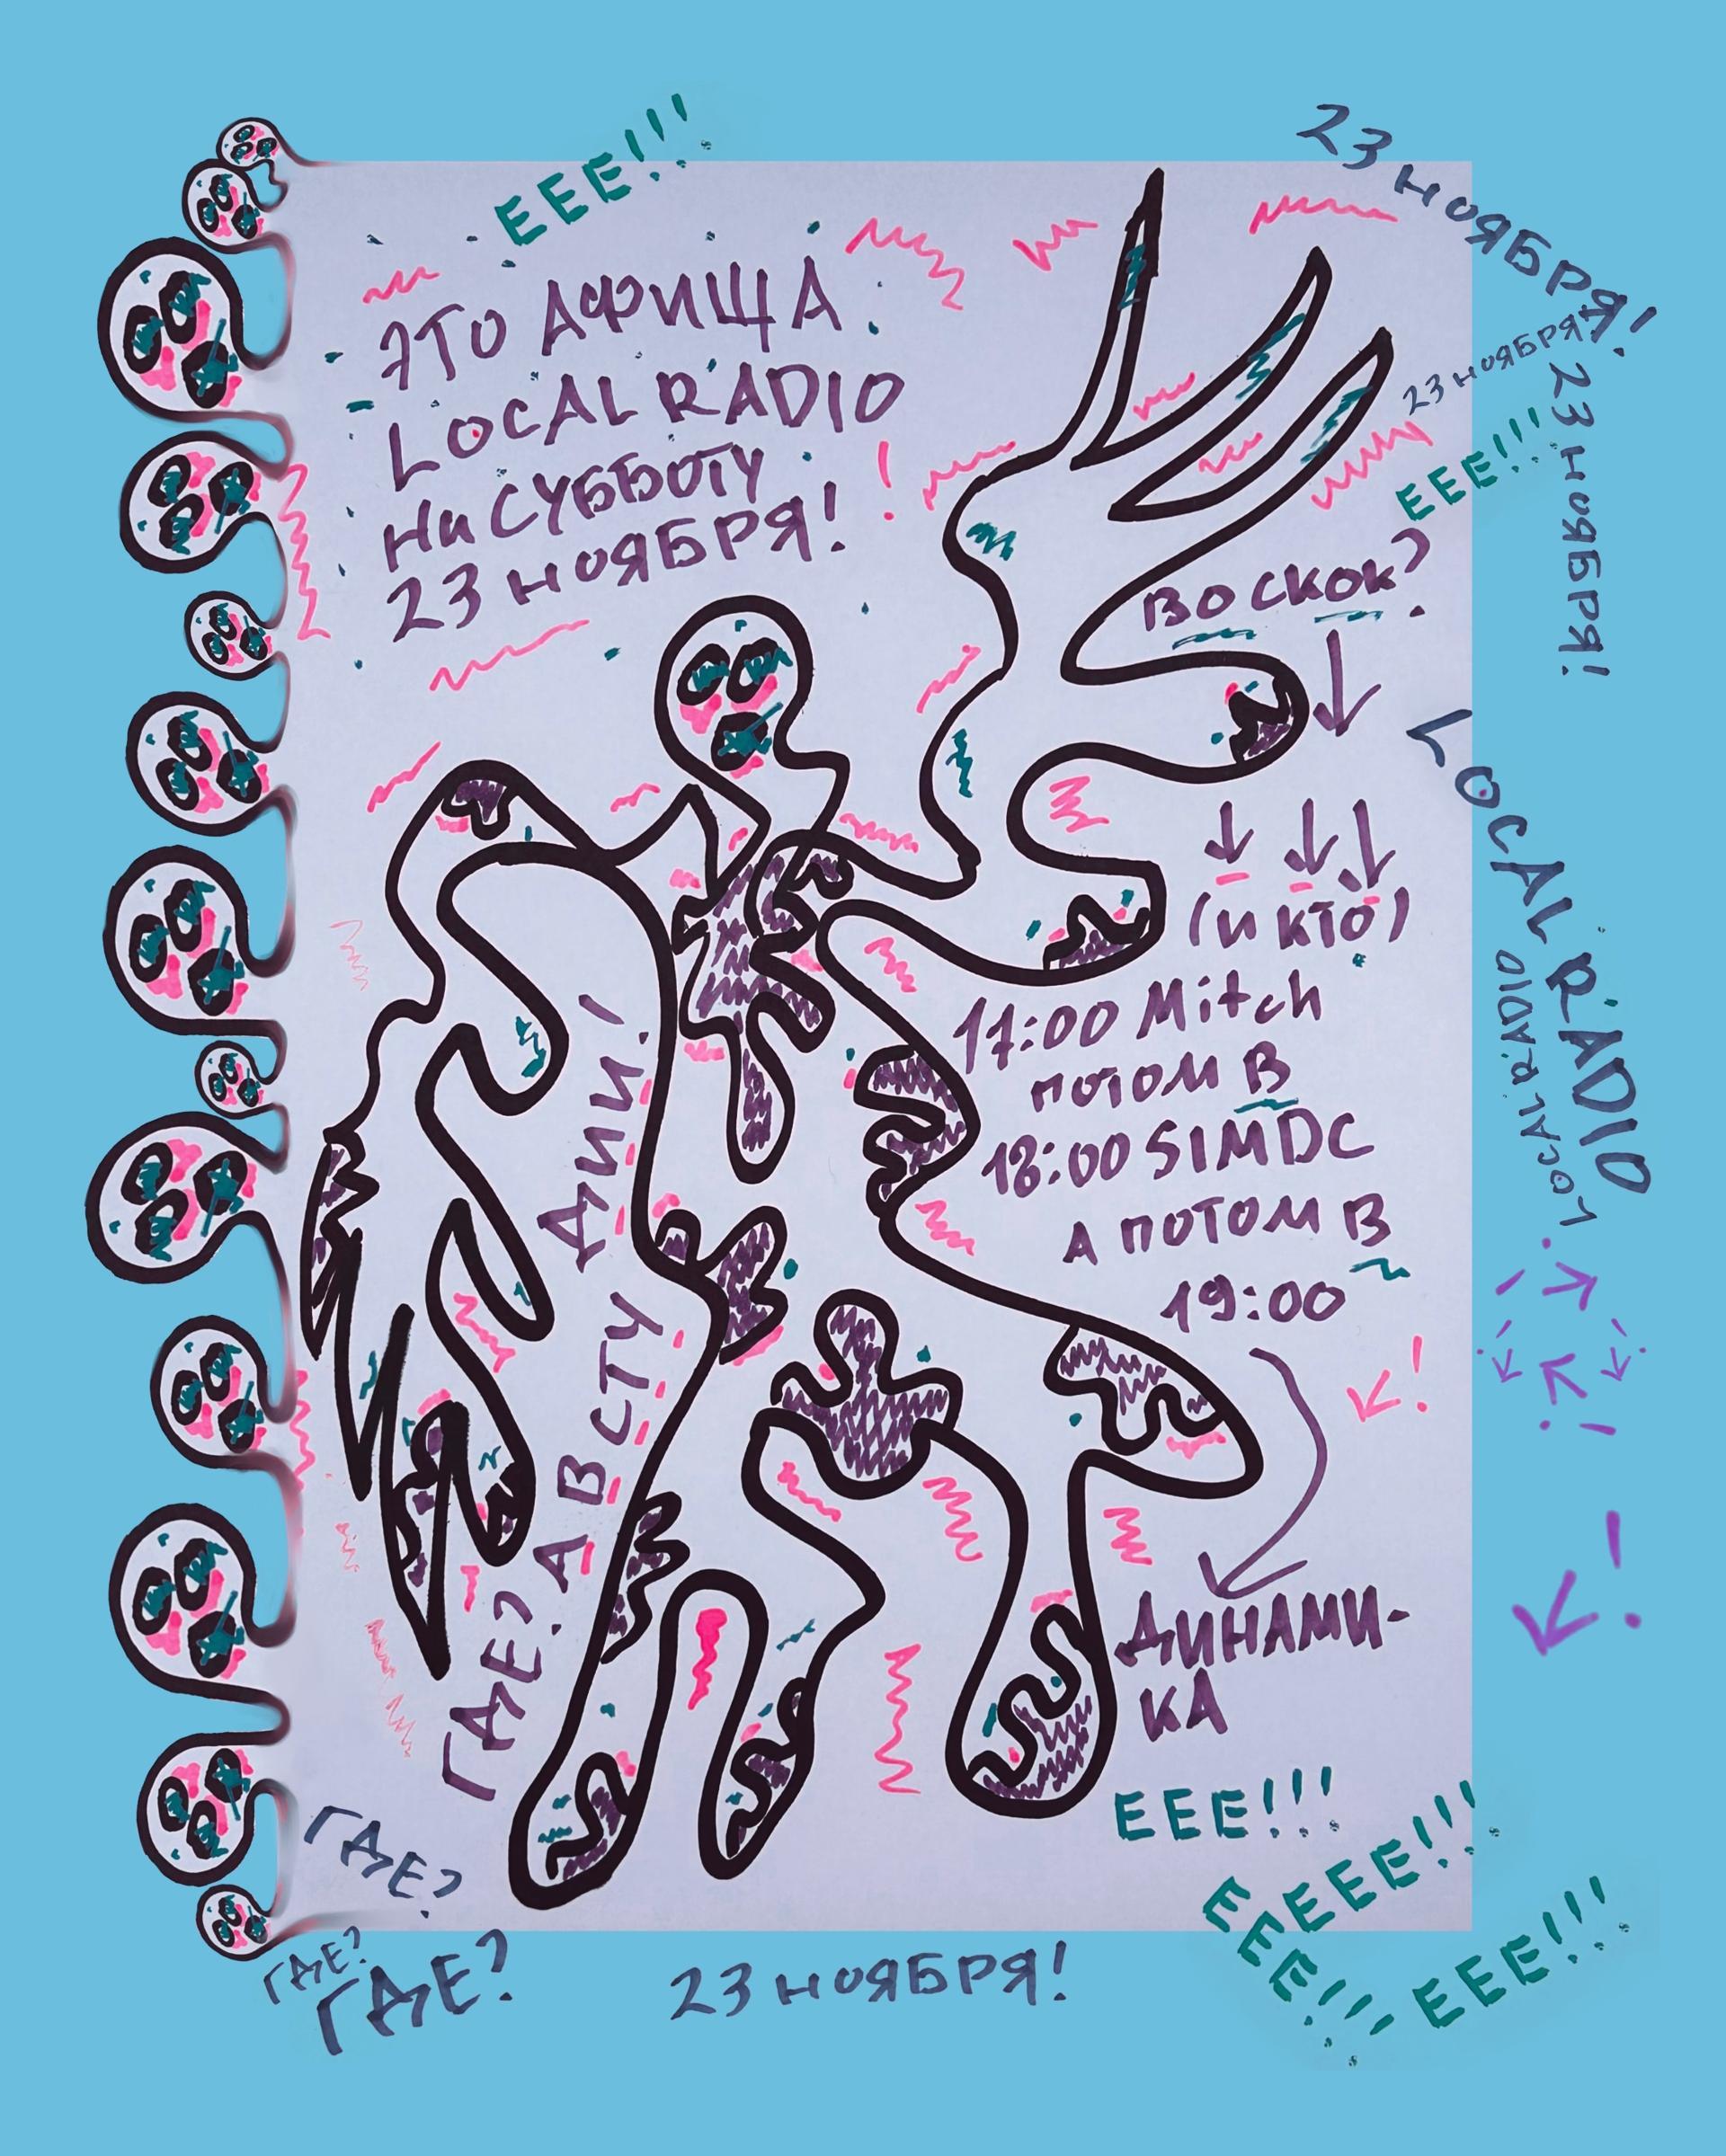 ЕЕЕ!!!
23 ноября!
ЭТО АФИША
LOCAL RADIO
НИ СУББОТУ
23 НОЯБРЯ!
!
23 ноября!
23 ноября!
ЕЕЕ!!!
ВО СКОК?
(и КТО)
17:00 Mitch
ПОТОМ В
18:00 SIMDC
А ПОТОМ В
19:00
ДИНАМИ-
КА
ГДЕ? А В СТУ ДИИ!
LOCAL RADIO
LOCAL RADIO
!
!
ЕЕЕ!!!
ЕЕЕЕЕ!!!
ЕЕЕ!!!
ЕЕЕ!!!
ГДЕ?
ГДЕ?
ГДЕ?
23 НОЯБРЯ!